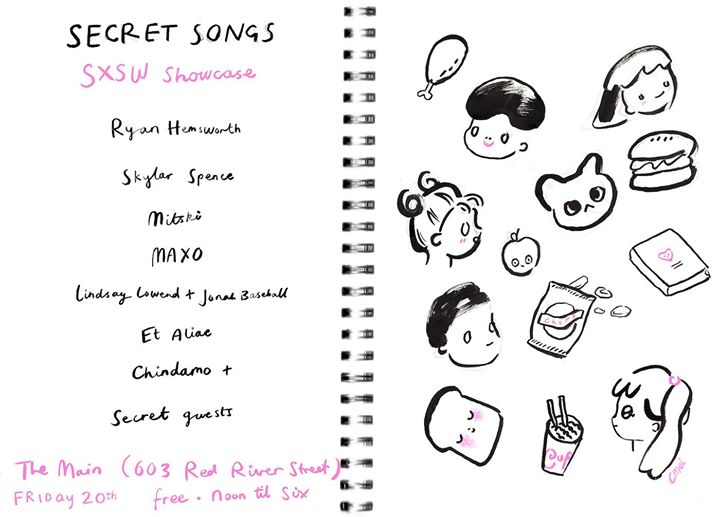 SECRET SONGS
SXSW Showcase
Ryan Hemsworth
Skylar Spence
Mitski
MAXO
Lindsay Lowend + Jonah Baseball
Et Aliae
Chindamo +
Secret guests
The Main (603 Red River Street)
FRIDAY 20th free. Noon til Six
Cup